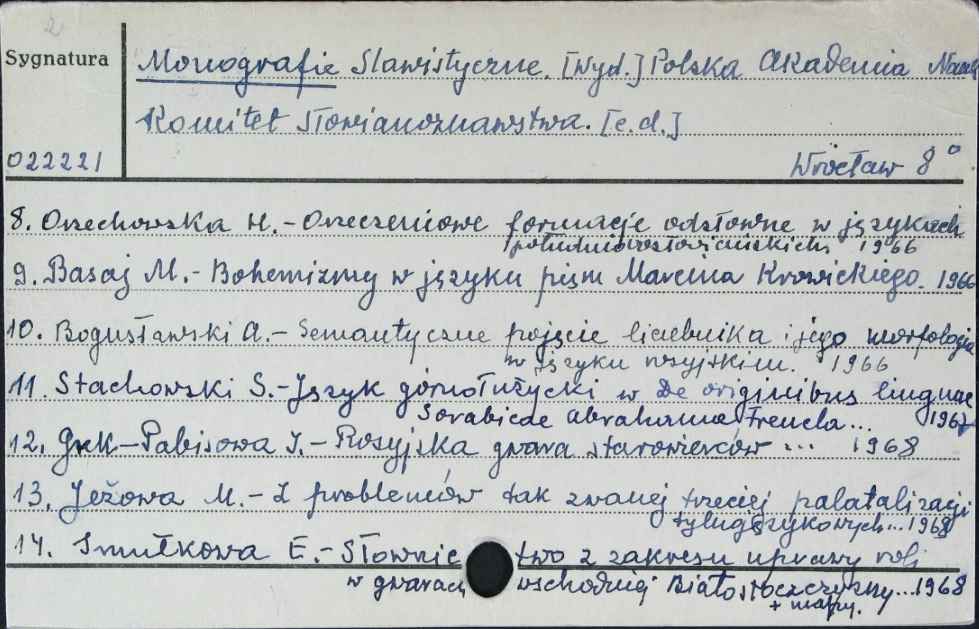 2
Sygnatura
Monografie Slawistyczne. [Wyd.] Polska Akademia Nauk
Komitet Słowianoznawstwa. [e.d.]
022221
Wrocław 8°
8. Orzechowska H. - Orzeczeniowe formacje odsłowne w językach
południowosłowiańskich, 1966
9. Basaj M. - Bohemizmy w języku pism Marcina Krowickiego. 1966
10. Bogusławski A. - Semantyczne pojęcie liczebnika i jego morfologia
w języku rosyjskim. 1966
11. Stachowski S. - Język górnołużycki w De originibus linguae
Sorabicae Abrahama Frencla... 1967
12. Grek-Pabisowa I. - Rosyjska gwara starowierców ... 1968
13. Jeżowa M. - Z problemów tak zwanej trzeciej palatalizacji
tylnojęzykowych... 1968
14. Smułkowa E. - Słownictwo z zakresu uprawy roli
w gwarach wschodniej Białostocczyzny... 1968
+ mapy.